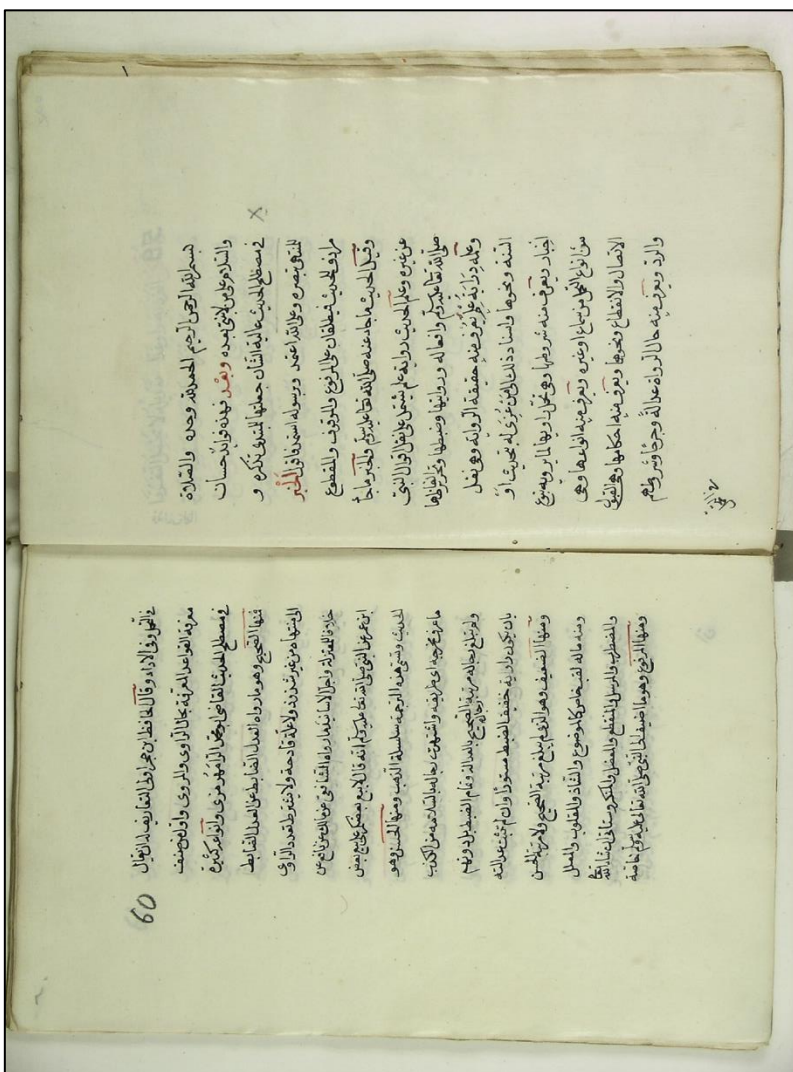 بسم الله الرحمن الرحيم الحمد لله وحده والصلاة
والسلام على من لا نبي بعده وبعد فهذه فوائد حسان
في مصطلح الحديث عالية الشان جعلتها للمبتدي تذكرة و
للمنتهى تبصرة وعلى الله اعتمد وبرسوله استمد فاقول الخبر
مرادف للحديث فيطلقان على المرفوع والموقوف والمقطوع
وقيل الحديث ما جاء عنه صلى الله تعالى عليه وسلم والخبر ما جاء
عن غيره وعلم الحديث رواية علم يشتمل على نقل اقوال النبي
صلى الله تعالى عليه وسلم وافعاله وروايتها وضبطها وتحرير الفاظها
وعلمه دراية علم يعرف منه حقيقة الرواية وهي نقل
السنة ونحوها واسناد ذلك الى من عزى له بتحديث او
اخبار ويعرف منه شروطها وهي تحمل راويها لما يرويه بنوع
من انواع التحمل من سماع او غيره ويعرف منه انواعها وهي
الاتصال والانقطاع ونحوها ويعرف منه احكامها وهي القبول
والرد ويعرف منه حال الرواة عدالة وجرحا وشروطهم
في التحمل
60
في التحمل وفي الاداء وقال الحافظ ابن حجر اولى التعاريف له ان يقال
معرفة القواعد المعرفة بحال الراوي والمروي واول من صنف
في مصطلح الحديث القاضي ابو محمد الرامهرمزي وانواعه كثيرة
فمنها الصحيح وهو ما رواه العدل الضابط عن العدل الضابط
الى منتهاه من غير شذوذ ولا علة قادحة ولا يشترط تعدد الراوي
خلافا للمعتزلة واجل الاسانيد ما رواه الشافعي عن مالك عن نافع عن
ابن عمر عن النبي صلى الله تعالى عليه وسلم انه قال لا يبع بعضكم على بيع بعض
الحديث وتسمى هذه الترجمة سلسلة الذهب ومنها الحسن وهو
ما عرف مخرجه اي طريقه واشتهرت رجاله بالسلامة من الكذب
ولم تبلغ رجاله مرتبة رجال الصحيح بالعدالة وتمام الضبط بل دونهم
بان يكون راويه خفيف الضبط مستورا وان لم تثبت عدالته
ومنها الضعيف وهو الذي لم يبلغ مرتبة الصحيح ولا مرتبة الحسن
ومنه ما له لقب خاص كالموضوع والشاذ والمقلوب والمعلل
والمضطرب والمرسل والمنقطع والمعضل والمنكر وستاتي ان شاء الله تعالى
ومنها المرفوع وهو ما اضيف الى النبي صلى الله تعالى عليه وسلم خاصة